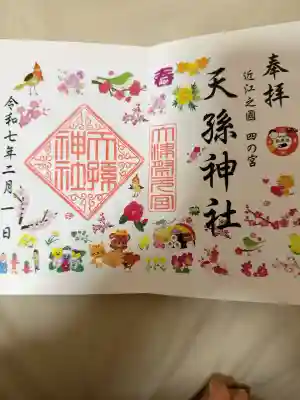 奉拝
近江之國 四の宮
天孫神社
春
大津四之宮
天孫
神社
令和七年二月一日